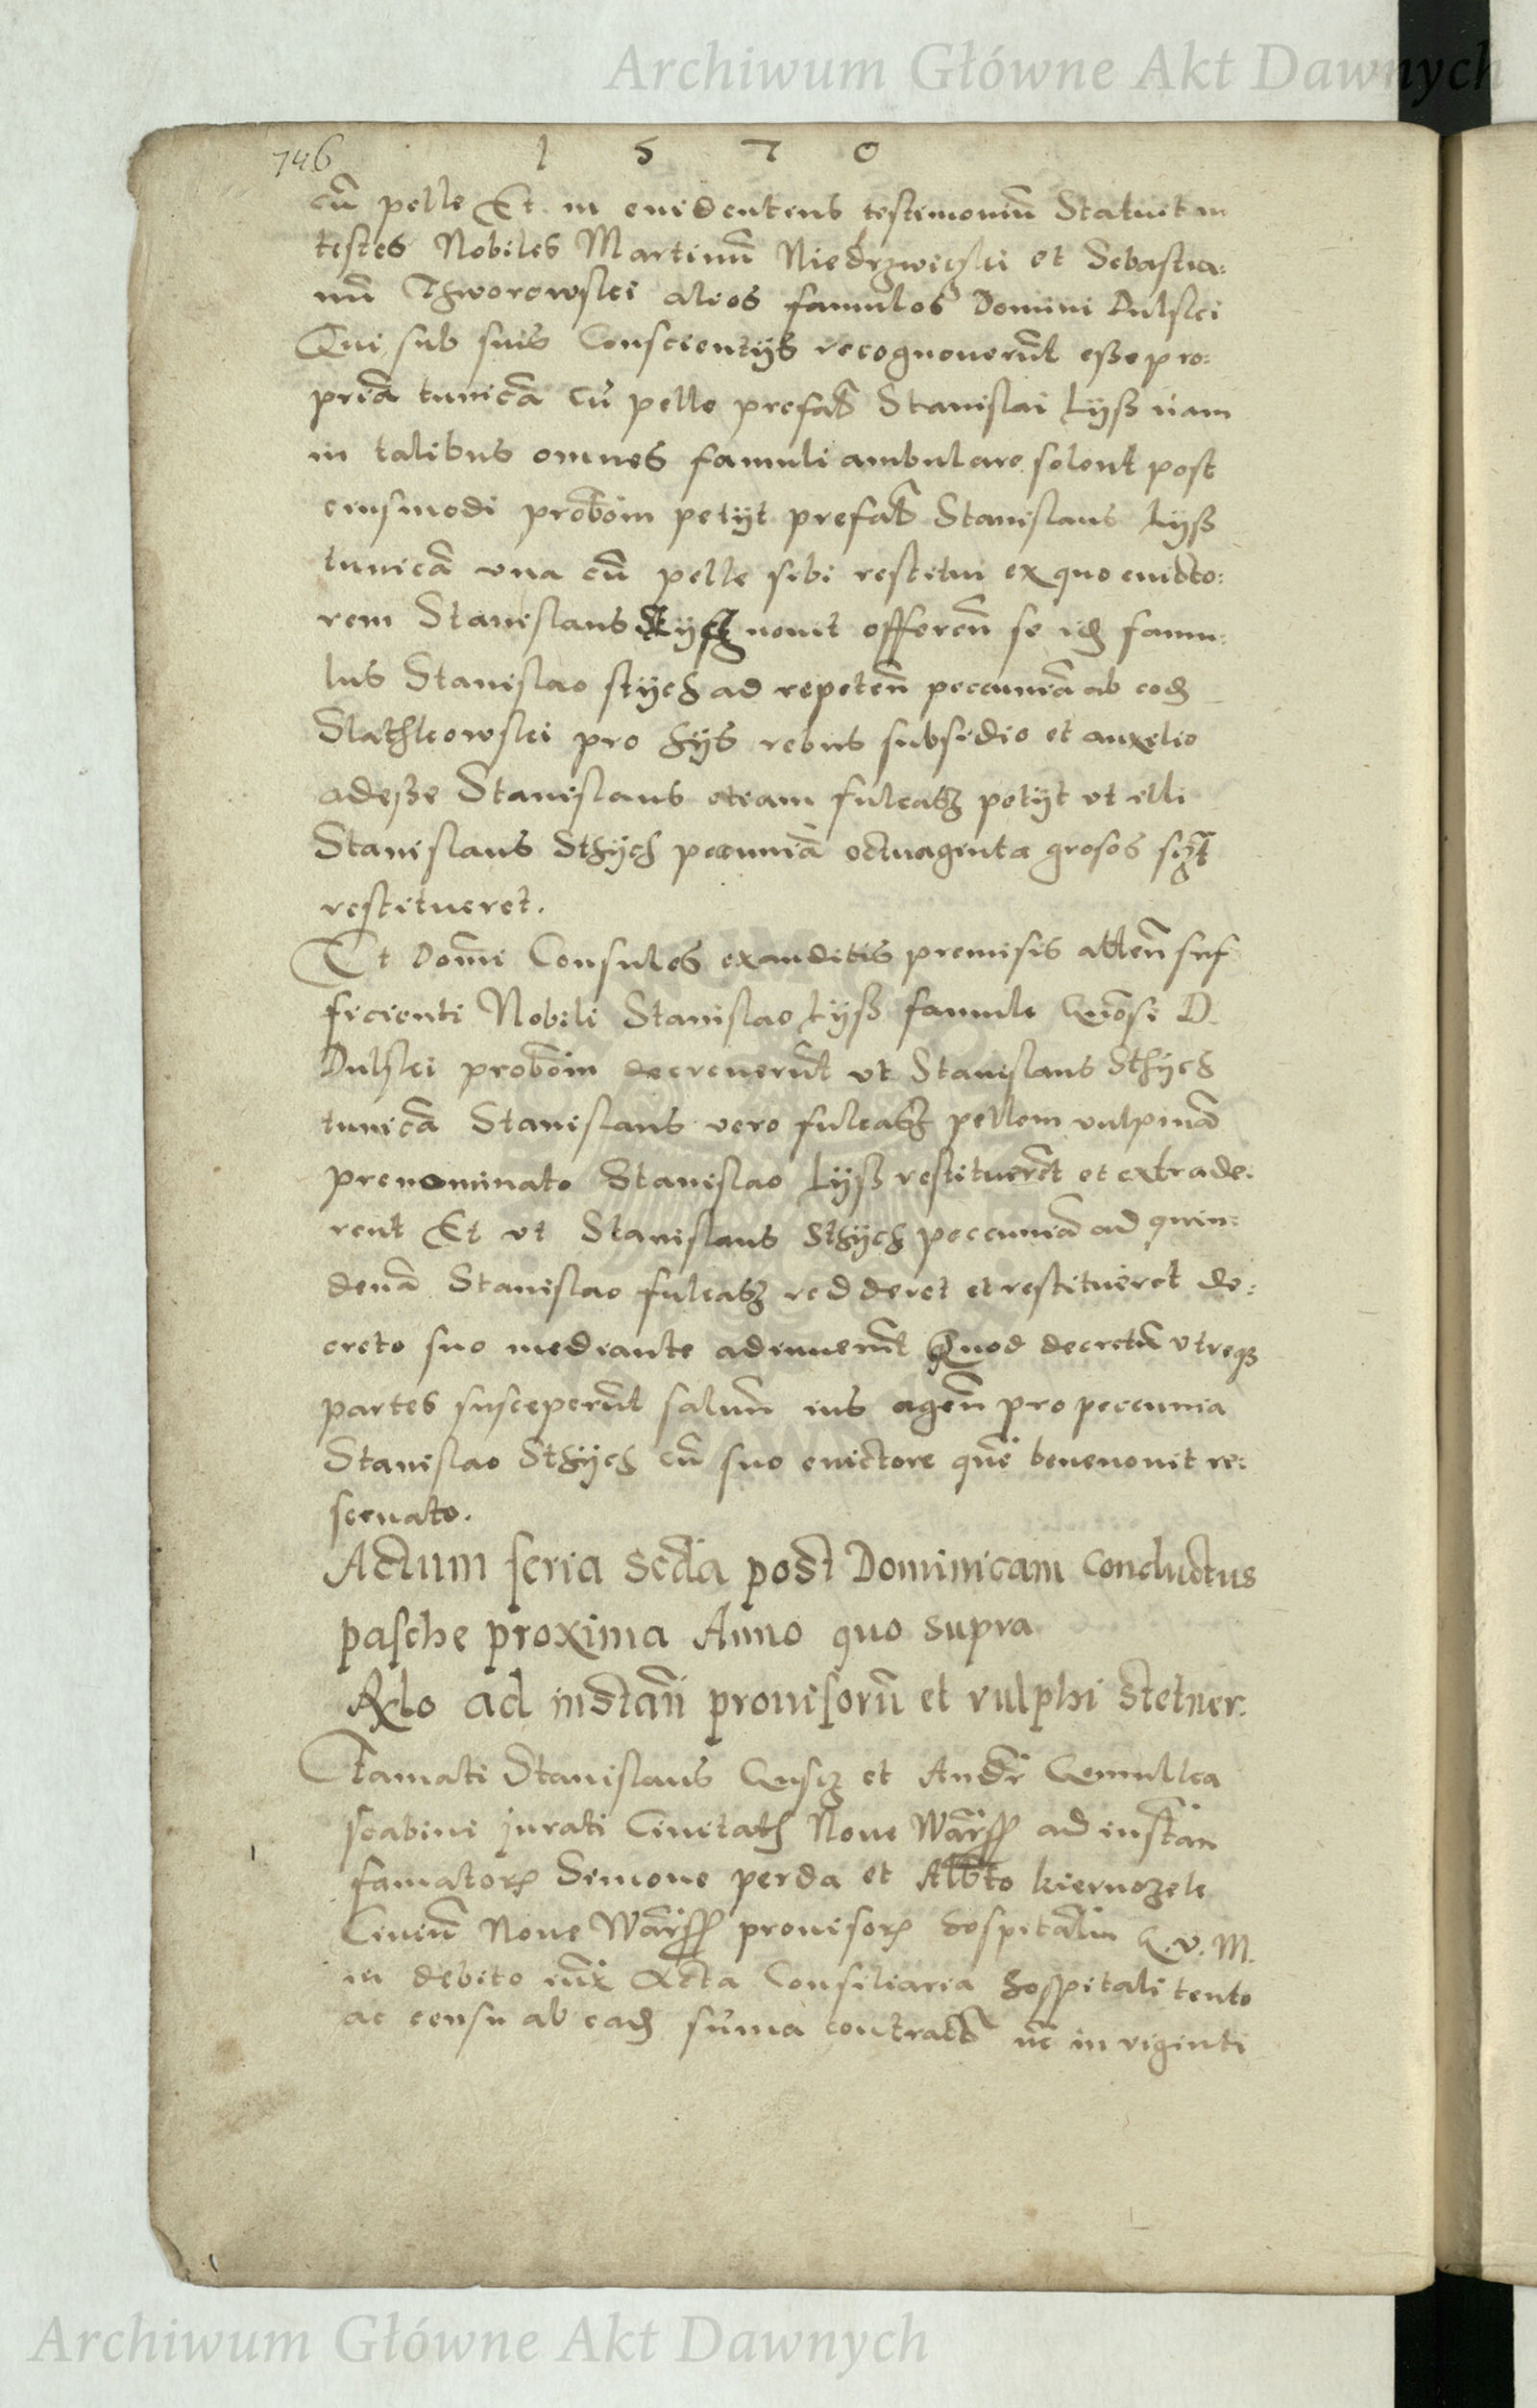 Archiwum Główne Akt Dawnych
746 1 5 7 0
cū pelle Et in euidentens testimoniū Statuit in
testes Nobiles Martinū Niedrzwiczki et Sebastia:
nū Thworowski alios famulos Domini Dulski
Qui sub suis Conscientijs recognouerūt esse pro:
priā tunicā cū pelle prefati Stanislai Lyss nam
in talibus omnes famuli ambulare solent post
eiusmodi probōm petijt prefatus Stanislaus Lyss
tunicā vna cū pelle sibi restitui ex quo euicto:
rem Stanislaus nouit offeren̄ se idē famu:
lus Stanislao stych ad repeten̄ peccuniā ab eodē
Slathkowski pro hijs rebus subsidio et auxelio
adesse Stanislaus etiam fulcasz petijt vt illi
Stanislaus Sthych pecuniā octuaginta grosos
restitueret.
Et Domi Consules exauditis premisis atten̄ suf
ficienti Nobili Stanislao Lyss famulo Gn̄osi D.
Dulski probōm decreuerūt vt Stanislaus Sthych
tunicā Stanislaus vero fulcasz pellem vulpinā
prenominato Stanislao Lyss restituerēt et extrade:
rent Et vt Stanislaus Sthych peccuniā ad quin:
denā Stanislao fulcasz redderet et restitueret de:
creto suo mediante adinuenerūt Quod decretū vtreq3
partes susceperūt saluū ius agen̄ pro peccunia
Stanislao Sthych cū suo euictore quē bene nouit re:
seruato.
Actum feria scda post Dominicam Conductus
pasche proxima Anno quo supra
Rlo ad instan̄ prouisorū et vulphi stetner.
Famati Stanislaus Gąsz et Andr
scabini jurati Ciuitatis Noue Warss ad instan
famatorū Simone perda et Albto kiernozek
Ciuiū Noue Warss prouisorū hospitaliu G. v. M.
in debito iux Acta Consiliaria hospitali tento
ac censu ab eadē sūma contracto nc in viginti
Archiwum Główne Akt Dawnych